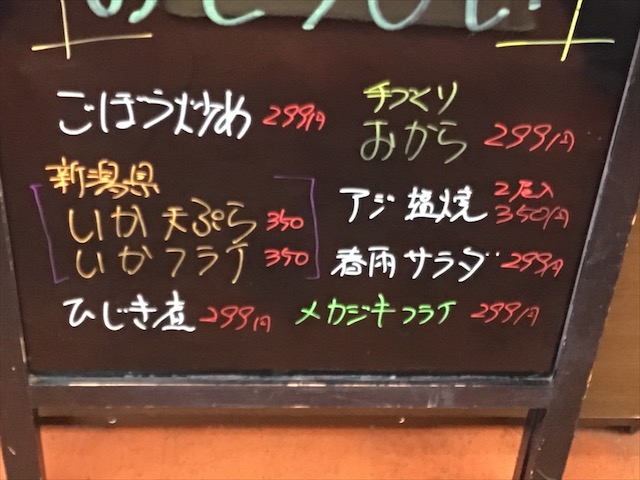 ごぼう炒め 299円
新潟県
いか天ぷら 350
いかフライ 350
ひじき煮 299円
手づくり
おから 299円
アジ塩焼 2尾入 350円
春雨サラダ 299円
メカジキフライ 299円